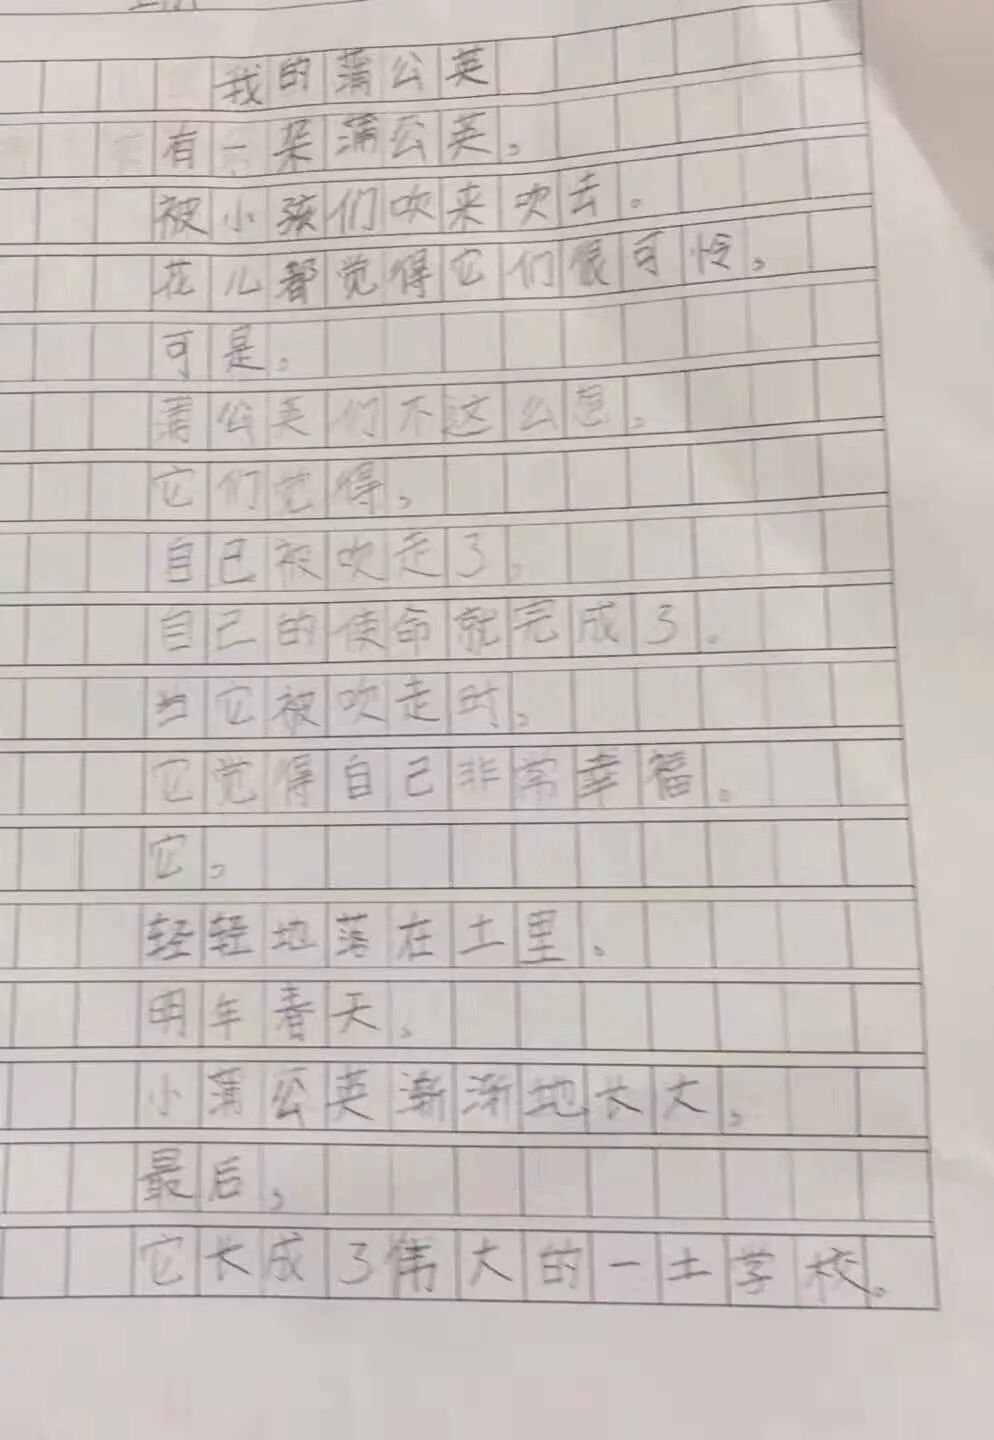 我的蒲公英
有一朵蒲公英，
被小孩们吹来吹去。
花儿都觉得它们很可怜，
可是。
蒲公英们不这么想，
它们觉得，
自己被吹走了，
自己的使命就完成了。
当它被吹走时，
它觉得自己非常幸福。
它，
轻轻地落在土里。
明年春天，
小蒲公英渐渐地长大，
最后，
它长成了伟大的一土学校。